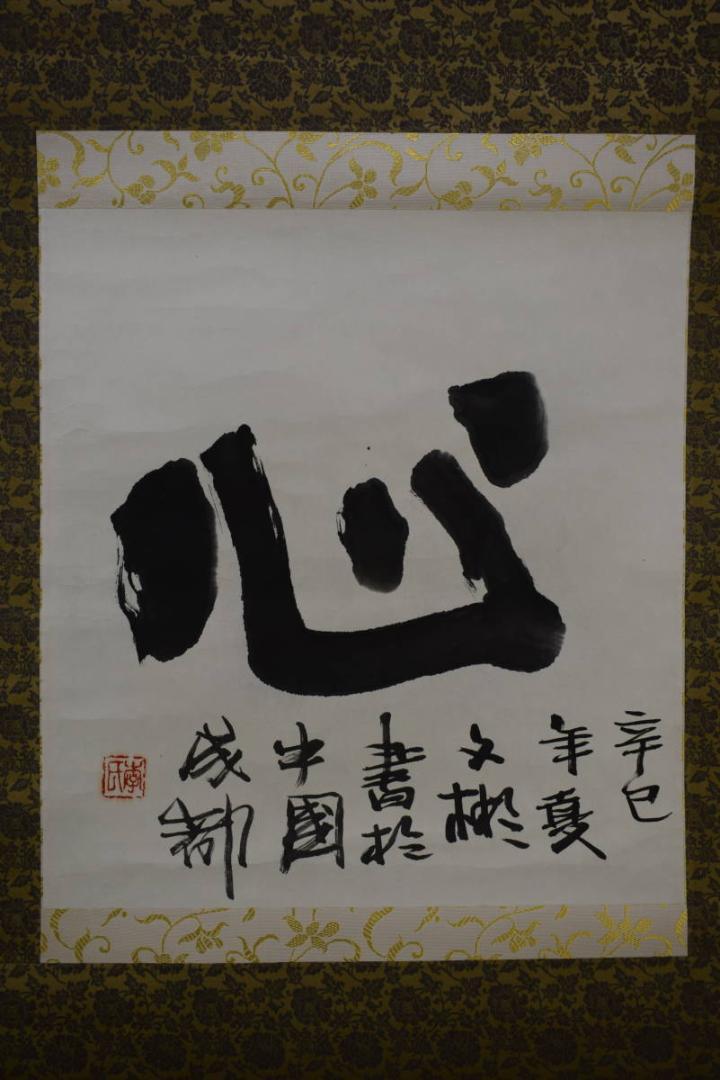 心
辛巳
年夏
文彬
書於
中國
成都
李氏